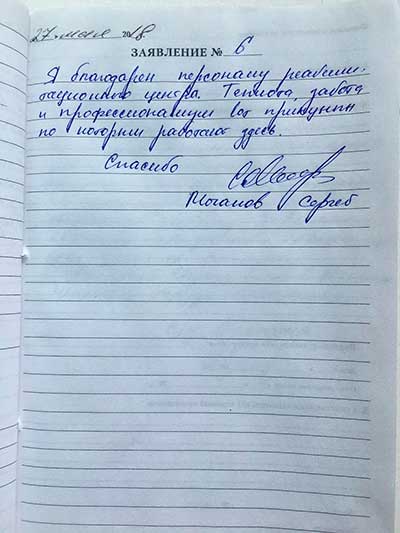 27 мая 2018
ЗАЯВЛЕНИЕ № 6
Я благодарен персоналу реабили-
тационного центра. Теплота, забота
и профессионализм вот принципы
по которым работают здесь.
Спасибо
Сергей